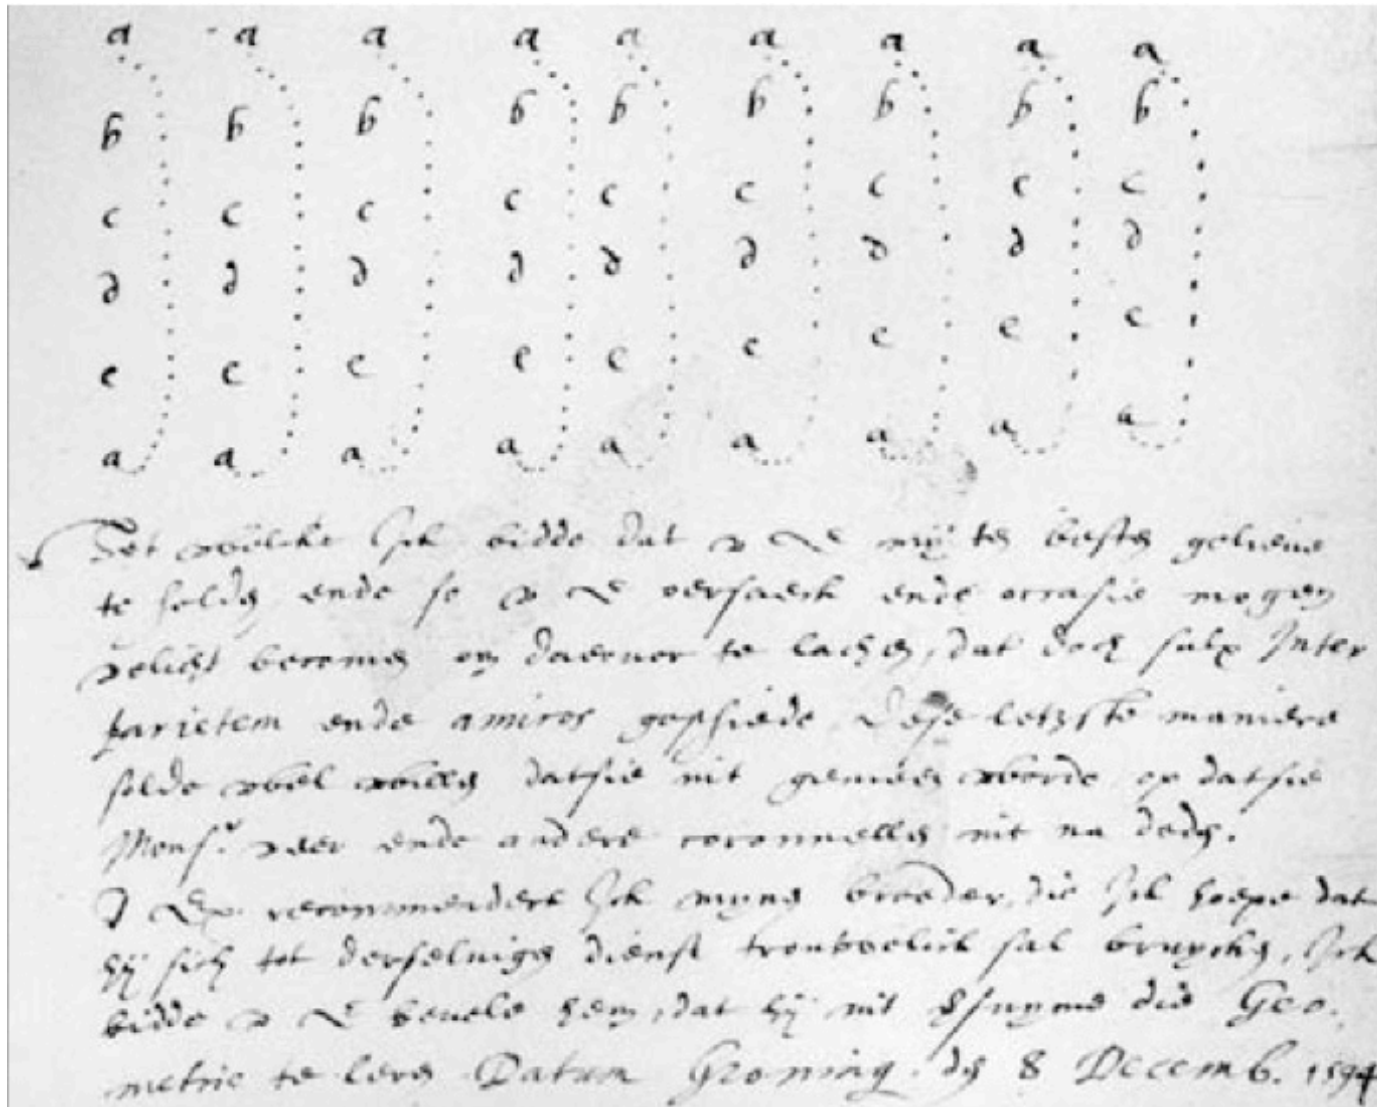 a a a a a a a a a
b b b b b b b b b
c c c c c c c c c
d d d d d d d d d
e e e e e e e e e
a a a a a a a a a
Het welcke Ick bidde dat U E mÿ ten besten gelieue
te holden ende so U E oersaeck ende occasie mogen
velicht becomen om daerover te lachen, dat doch sulx Inter
parietem ende amicos geschiede. Dese letzste maniere
solde wel willen datsie nit gemeen worde op datsie
Monsr. veer ende andere coronnellen nit na doen.
U Ex. Ick mynen broeder, die Ick hoepe dat
hÿ sich tot derseluigen dienst trouwelick sal bruycken, Ick
bidde U E beuele hem, dat hÿ nit versuyme die Geo-
metrie te leren Datum Groning. den 8 Decemb. 1594